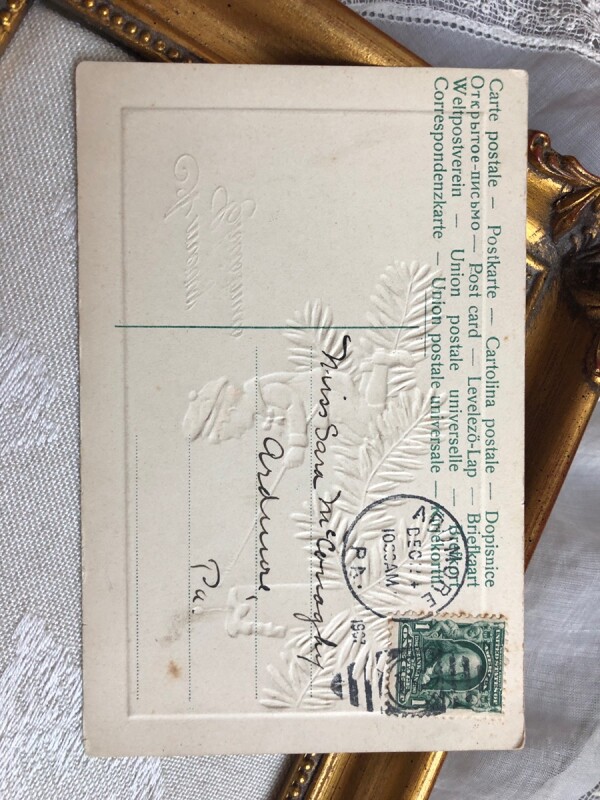 Carte postale — Postkarte — Cartolina postale — Dopisnice
Открытое-письмо — Post card — Levelező-Lap — Briefkaart
Weltpostverein — Union postale universelle — Brefkort
Correspondenzkarte — Union postale universale —
DEC
10 AM
PA.
UNITED STATES OF AMERICA
1 1
Miss Sara McConaghy
Ardmore
Pa.